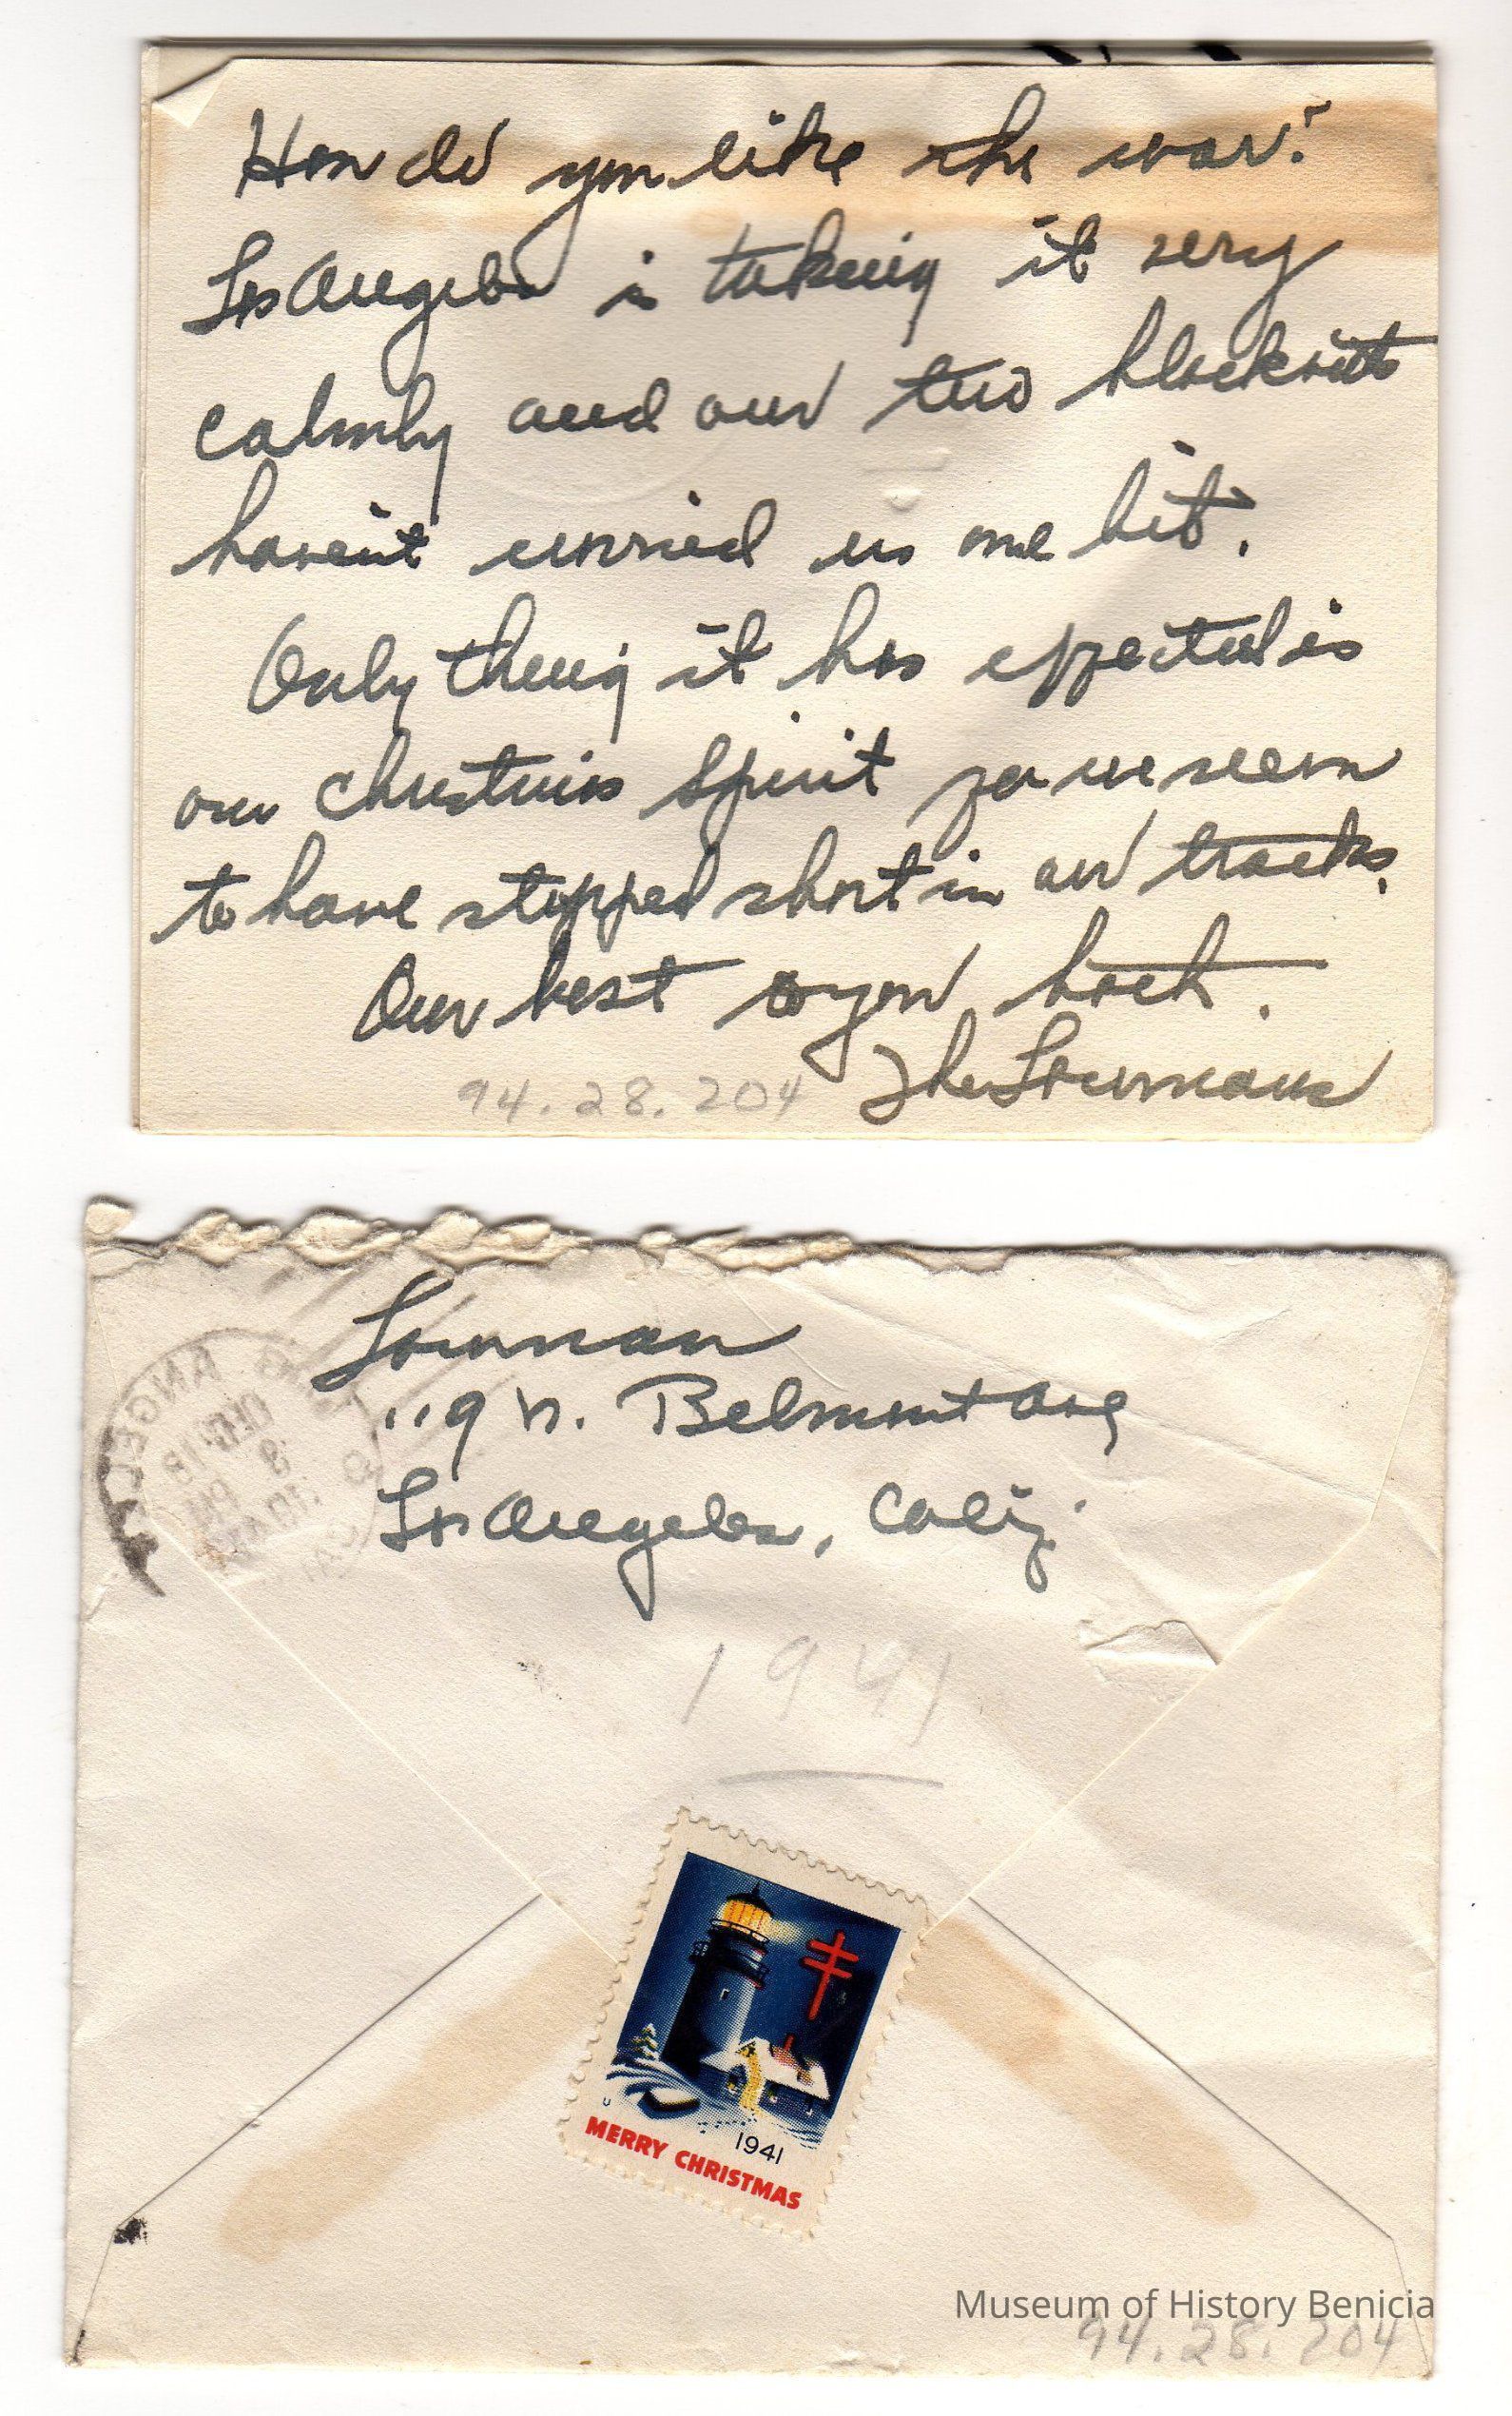 How do you like the war?
Los Angeles is taking it very
calmly and our two blackouts
haven't worried us one bit.
Only thing it has effected is
our Christmas Spirit for we seem
to have stopped short in our tracks.
Our best to you both.
The Lowmans
94.28.204
Lowman
119 N. Belmont Ave
Los Angeles, Calif.
LOS ANGELES
DEC 18
PM
1941
1941
MERRY CHRISTMAS
Museum of History Benicia
94.28.204